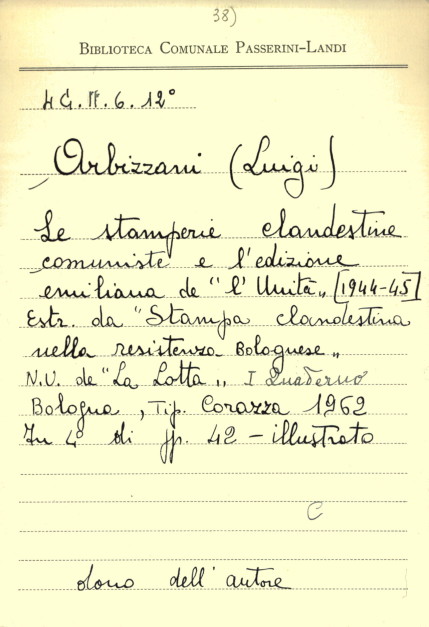 38)
BIBLIOTECA COMUNALE PASSERINI-LANDI
4 G. II. 6. 12°
Arbizzani (Luigi)
Le stamperie clandestine
comuniste e l'edizione
emiliana de "l'Unità„ [1944-45]
Estr. da "Stampa clandestina
nella resistenza Bolognese„
N.U. de "La Lotta„ I Quaderno
Bologna, Tip. Corazza 1962
In 4° di pp. 42 - illustrato
C
dono dell'autore